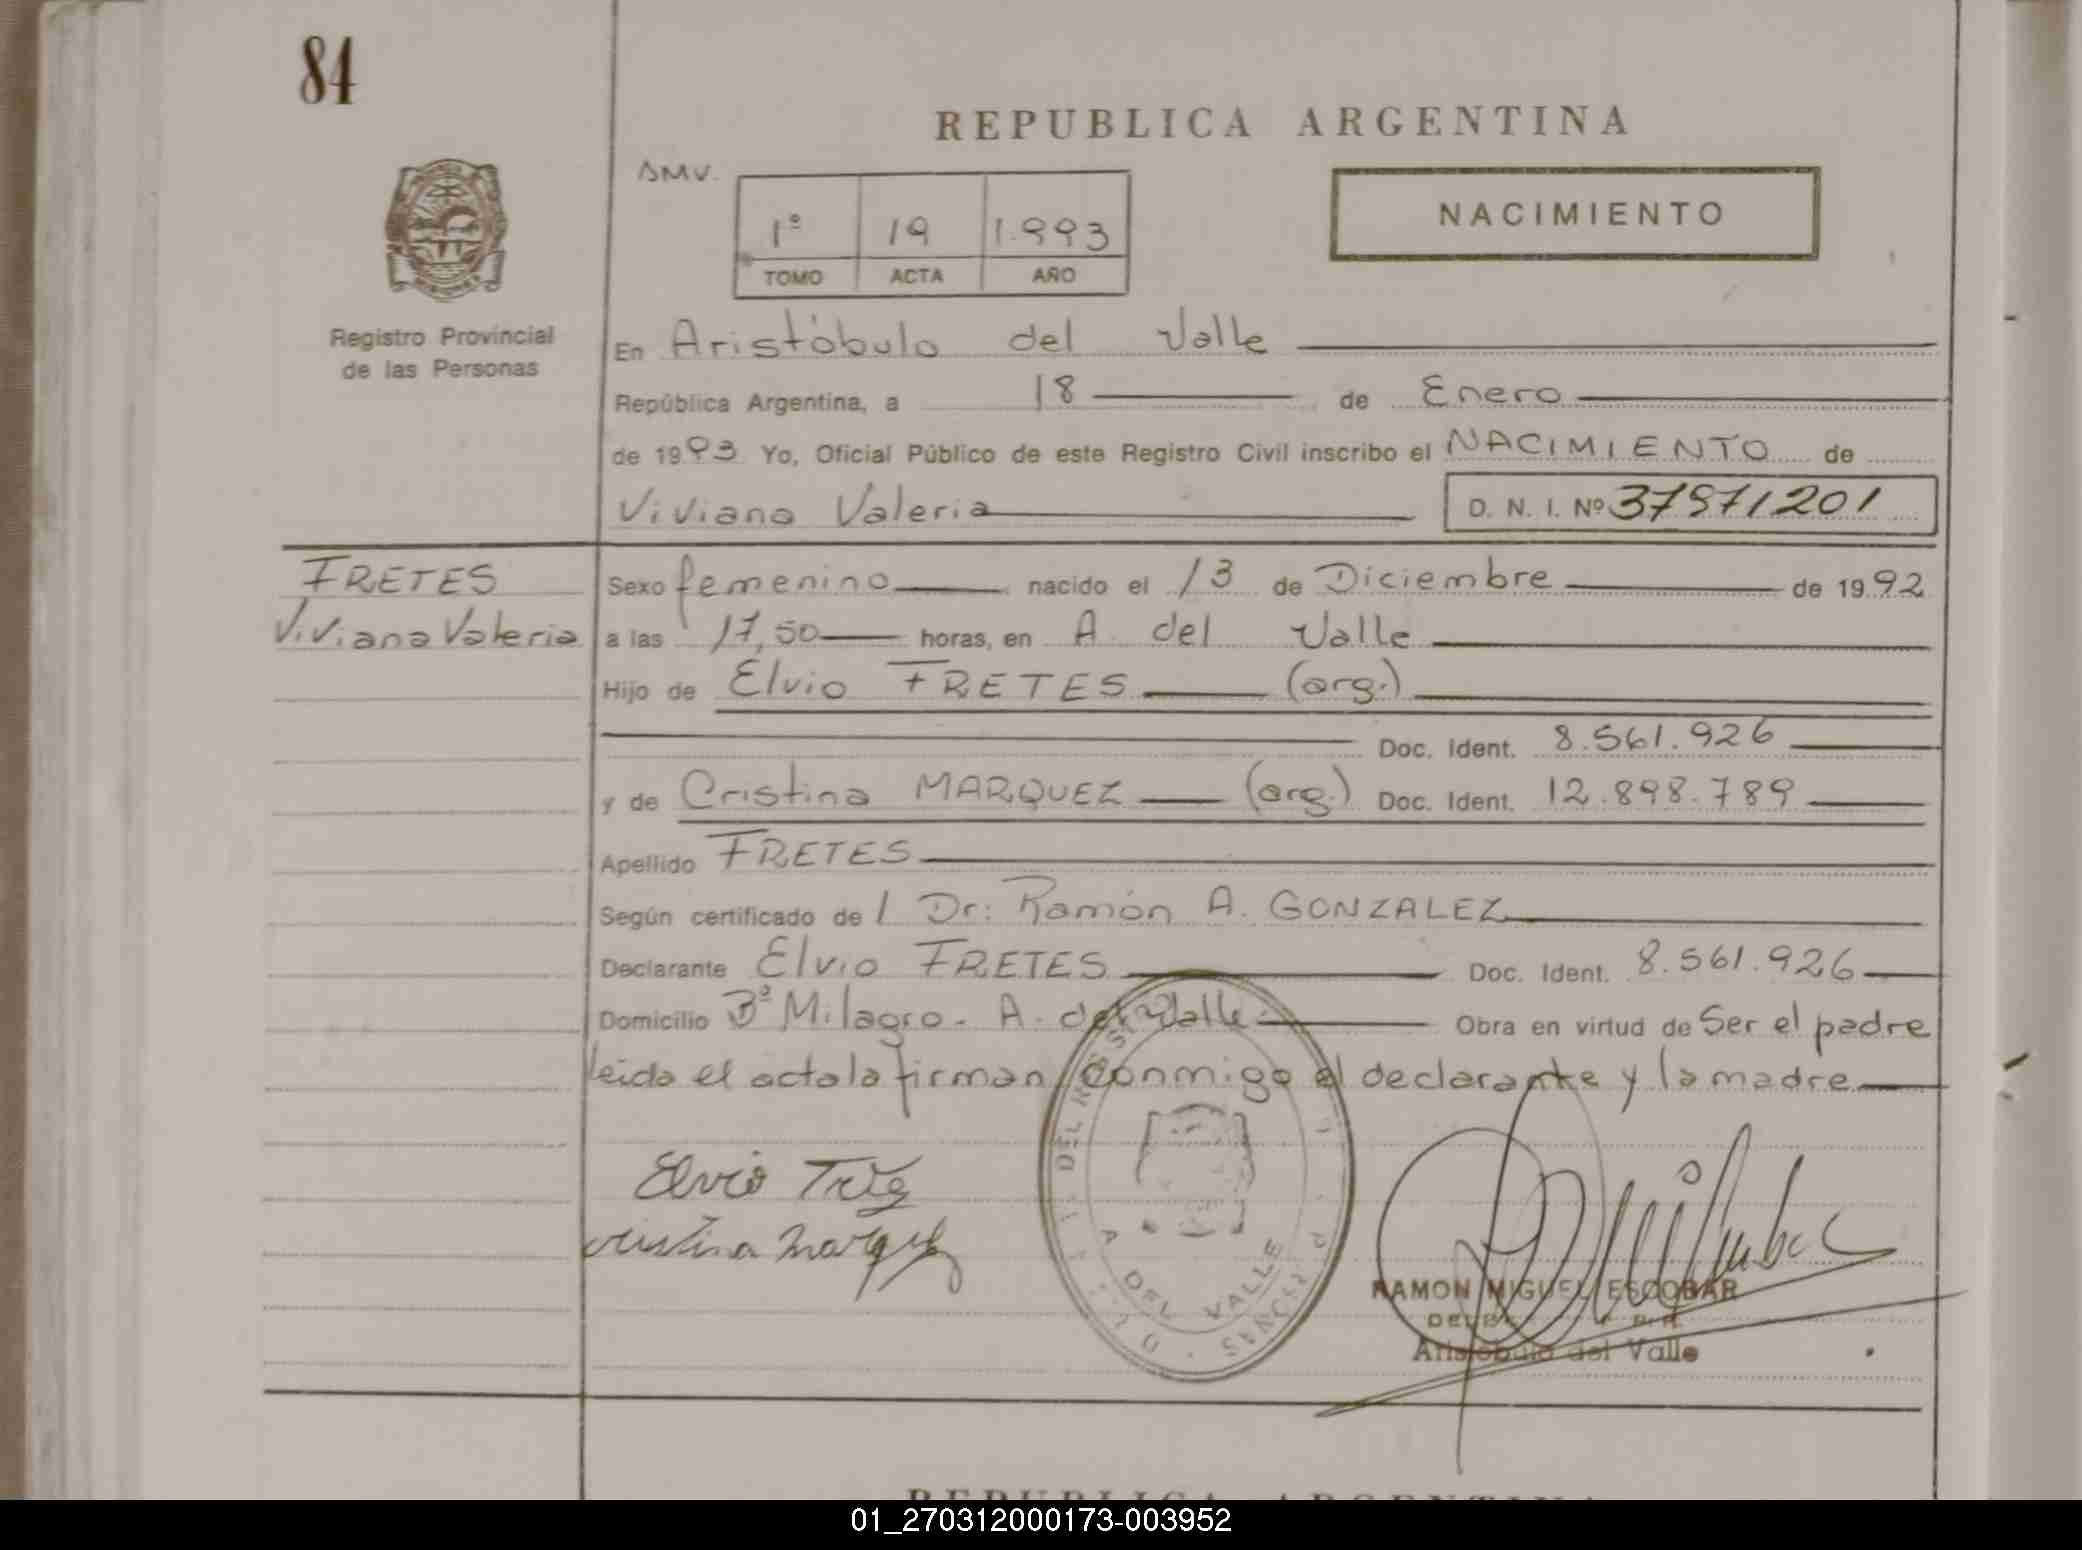 84
REPUBLICA ARGENTINA
NACIMIENTO
1º 19 1.993
TOMO ACTA AÑO
Registro Provincial
de las Personas
En Aristóbulo del Valle
República Argentina, a 18 de Enero
de 1993 Yo, Oficial Público de este Registro Civil inscribo el NACIMIENTO de
Viviana Valeria D. N. I. Nº 37571201
FRETES
Viviana Valeria
Sexo femenino nacido el 13 de Diciembre de 1992
a las 17,50 horas, en A. del Valle
Hijo de Elvio FRETES (arg.)
Doc. Ident. 8.561.926
y de Cristina MARQUEZ (arg.) Doc. Ident. 12.898.789
Apellido FRETES
Según certificado de l Dr: Ramón A. GONZALEZ
Declarante Elvio FRETES Doc. Ident. 8.561.926
Domicilio Bº Milagro. A. del Valle Obra en virtud de Ser el padre
leida el acta la firman conmigo el declarante y la madre
Elvio
Cristina Marquez
A DEL VALLE
RAMON MIGUEL ESCOBAR
Aristóbulo del Valle
REPUBLICA ARGENTINA
01_270312000173-003952